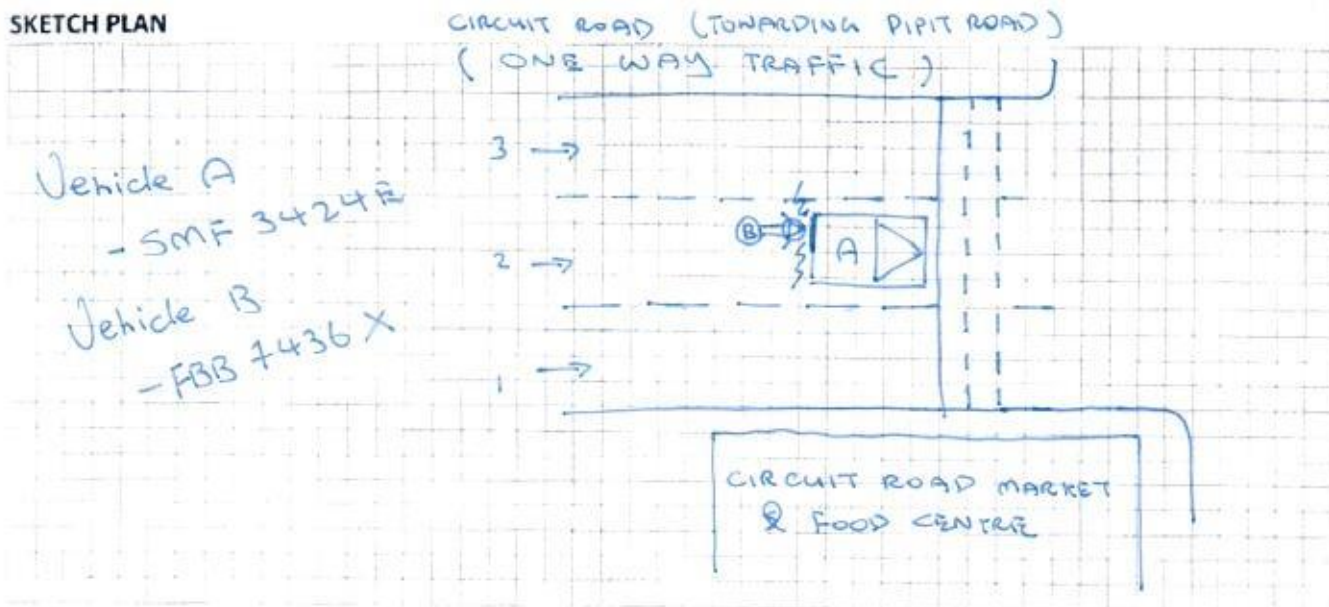 SKETCH PLAN
CIRCUIT ROAD (TOWARDING PIPIT ROAD)
(ONE WAY TRAFFIC)
Vehicle A
- SMF 3424E
Vehicle B
- FBB 7436X
3 →
2 →
1 →
B
A
CIRCUIT ROAD MARKET
& FOOD CENTRE